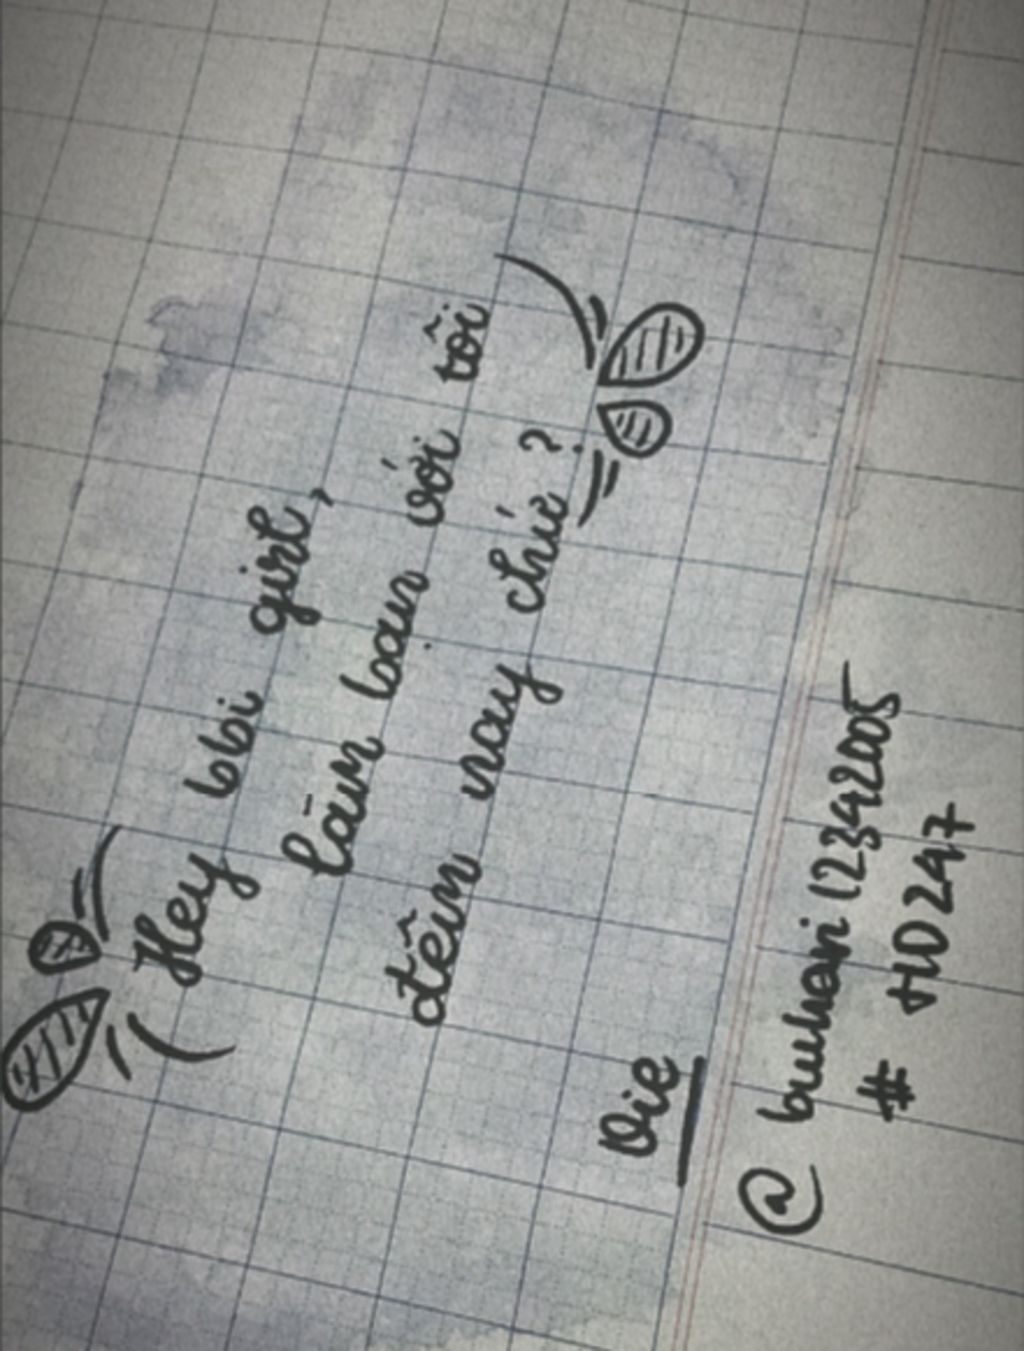 Hey bbi girl,
làm loạn với tôi
đêm nay chứ?
Die
@ buuhani12342005
# HD247